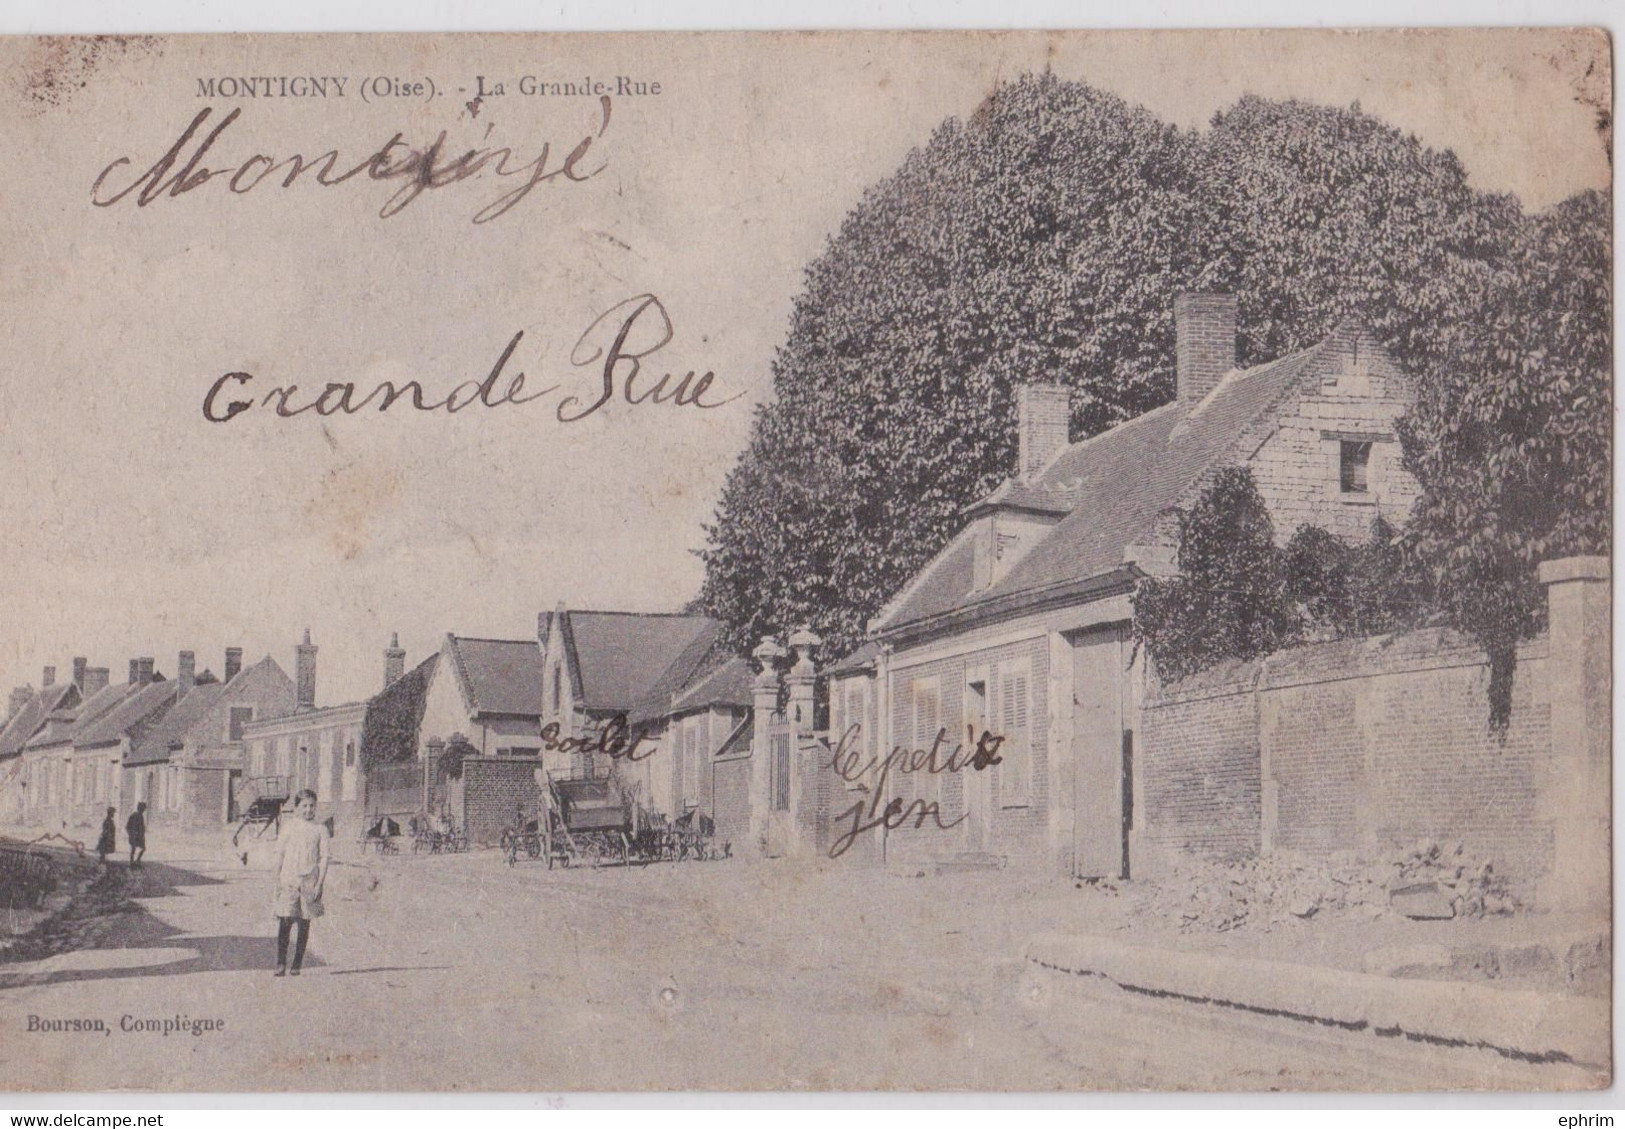 MONTIGNY (Oise). - La Grande-Rue
Grande Rue
le petit
jen
Bourson, Compiègne
ephrim
https://www.delcampe.net